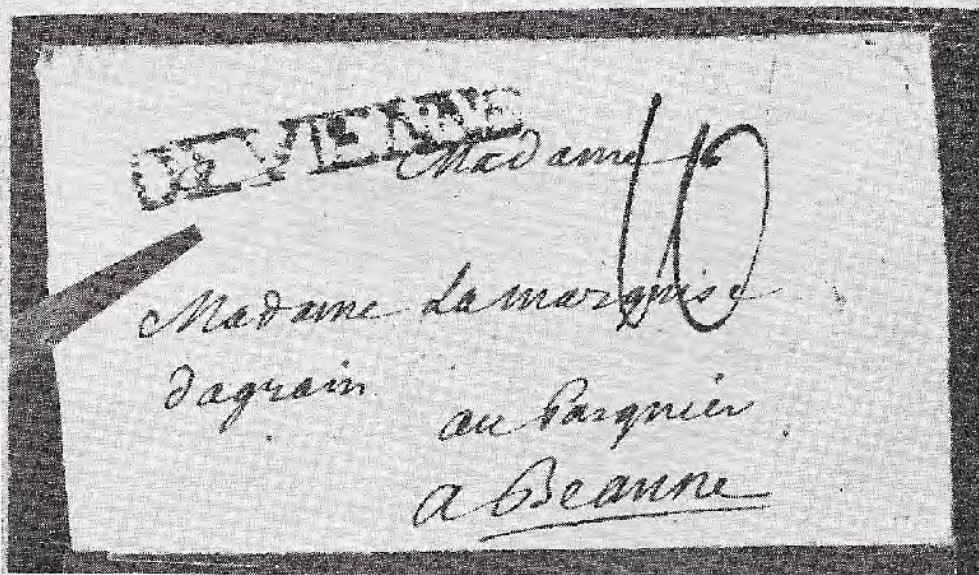 DEVIENNE
Madame
10
Madame La marquise
dagrain
au Pasquier
a Beaune